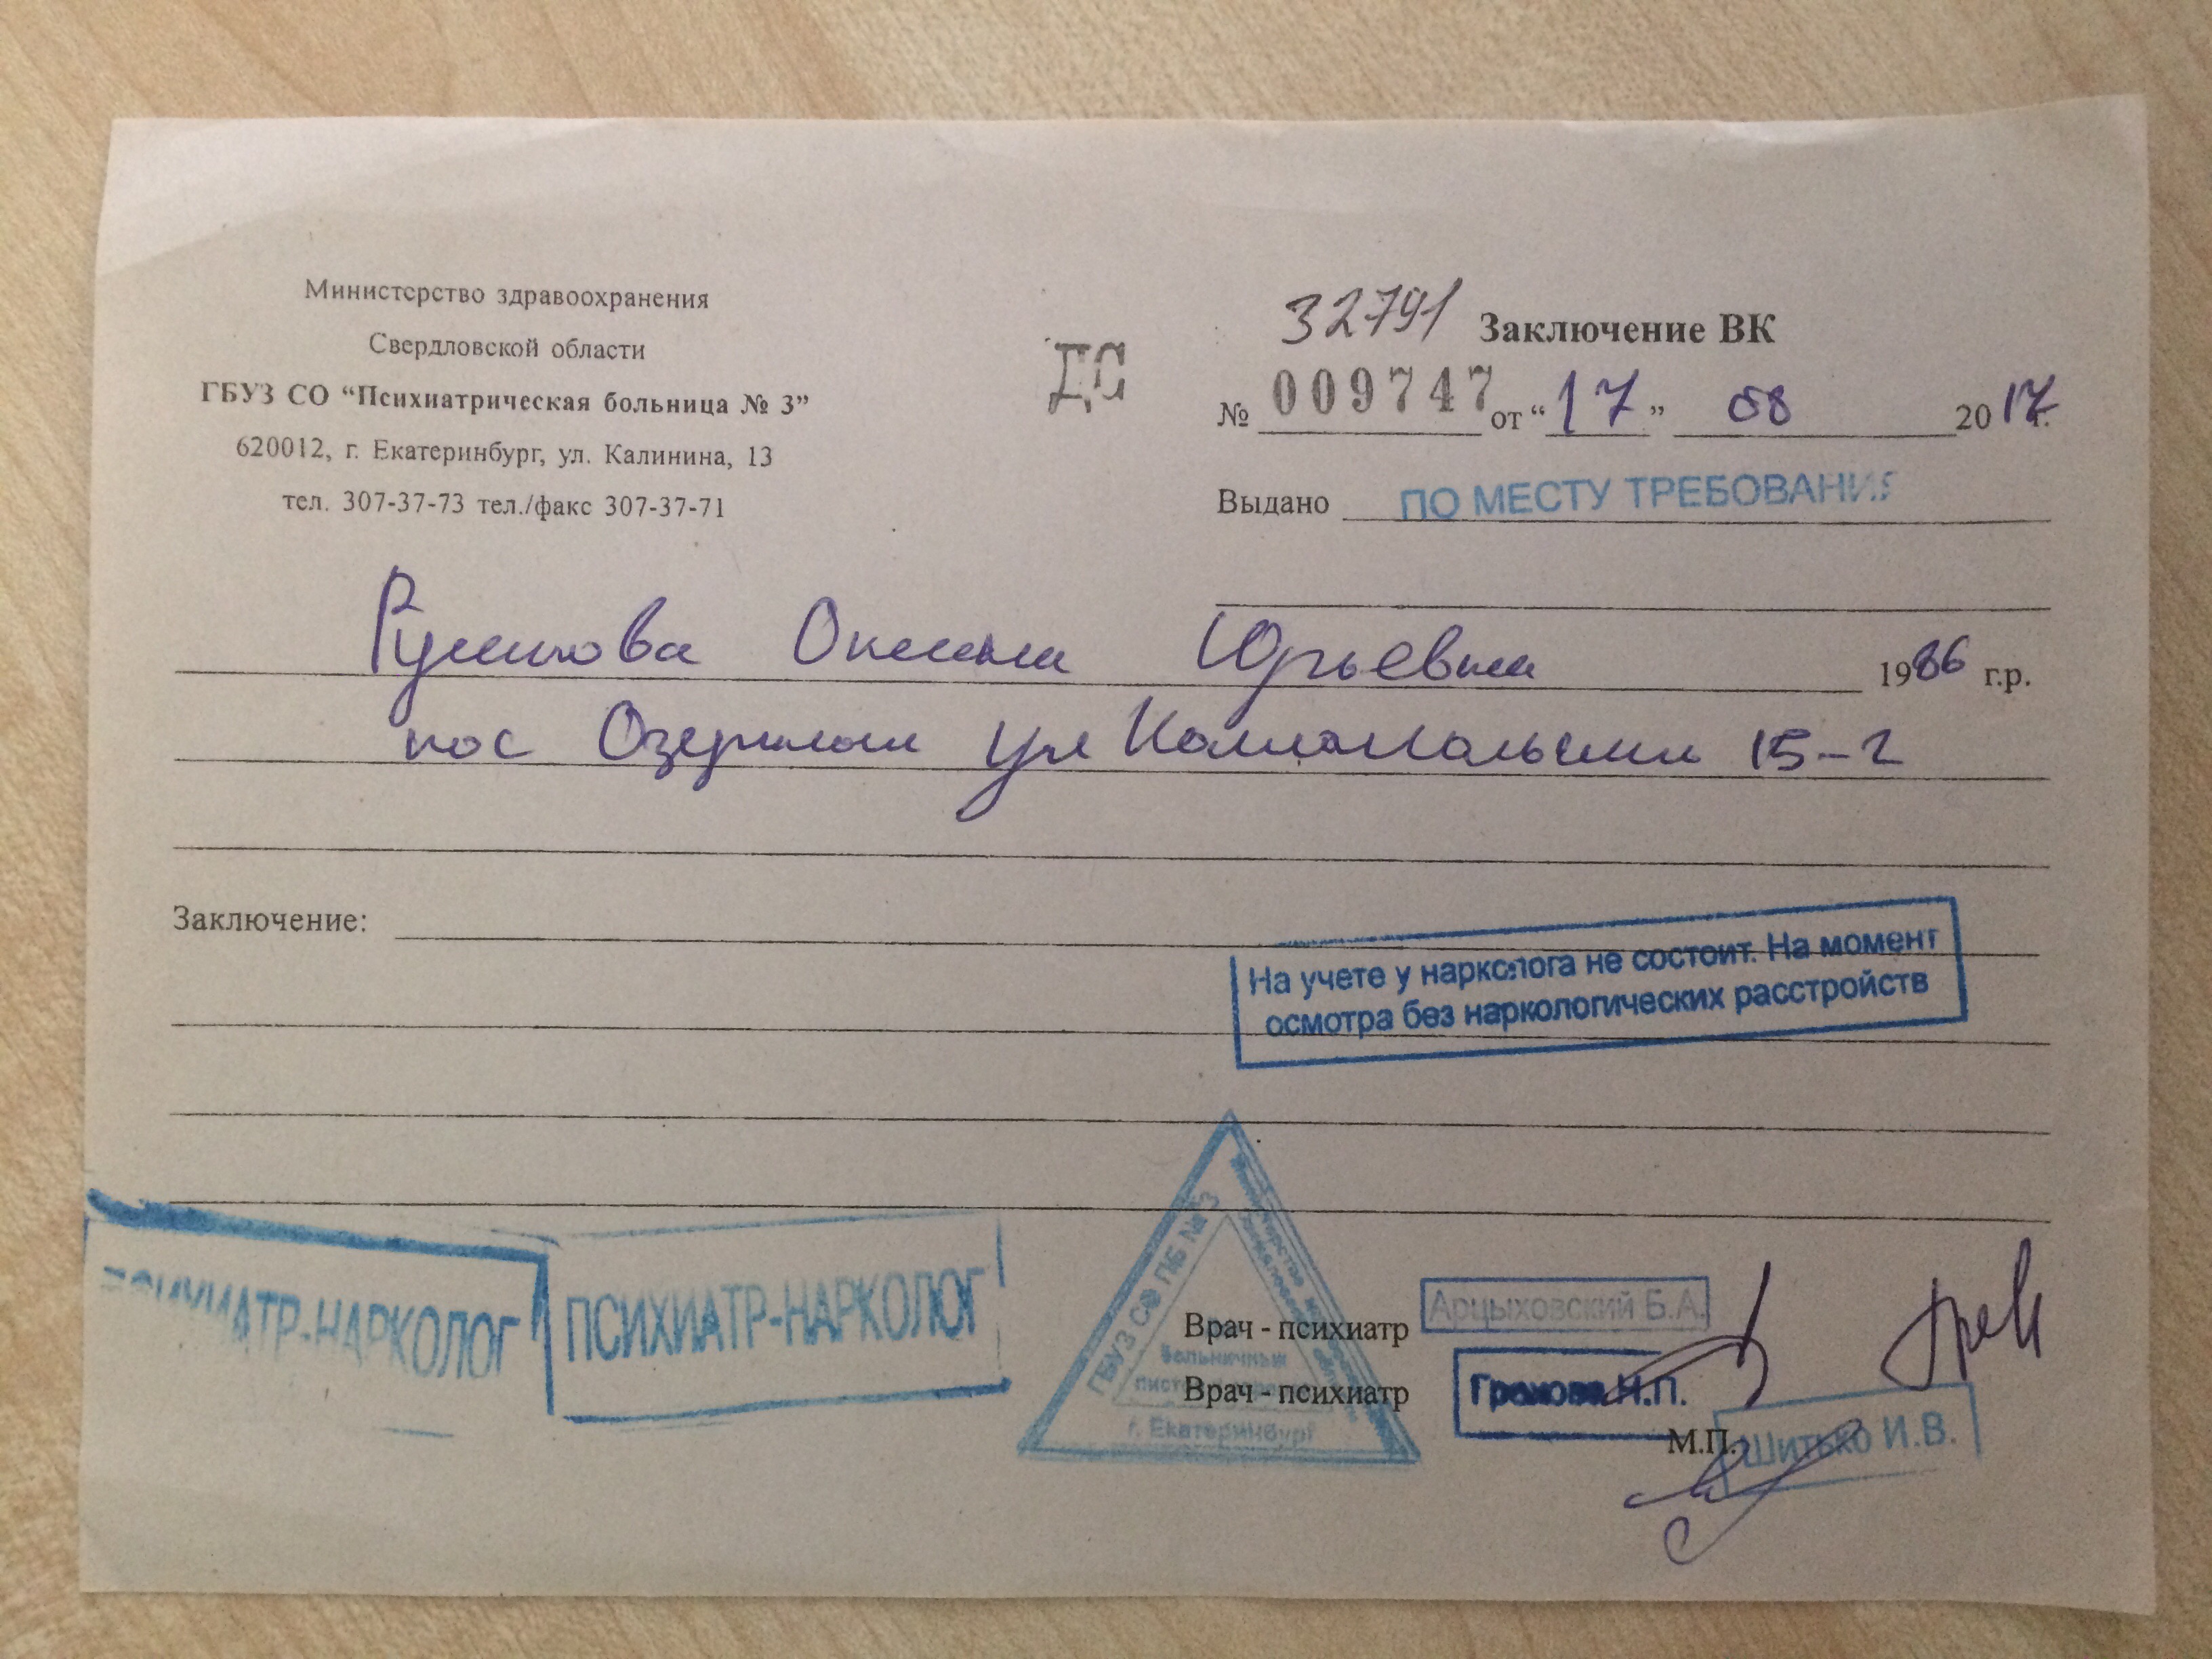 Министерство здравоохранения
Свердловской области
ГБУЗ СО “Психиатрическая больница № 3”
620012, г. Екатеринбург, ул. Калинина, 13
тел. 307-37-73 тел./факс 307-37-71
ДС
32791 Заключение ВК
№ 009747 от “17” 08 2017 г.
Выдано ПО МЕСТУ ТРЕБОВАНИЯ
Оксана Юрьевна 1986 г.р.
пос ул 15-2
Заключение:
На учете у нарколога не состоит. На момент
осмотра без наркологических расстройств
ПСИХИАТР-НАРКОЛОГ
ПСИХИАТР-НАРКОЛОГ
ГБУЗ СО ПБ № 3
Министерство
Больничный
г. Екатеринбург
Врач - психиатр Арцыховский Б.А.
Врач - психиатр Н.П.
М.П. Шитько И.В.